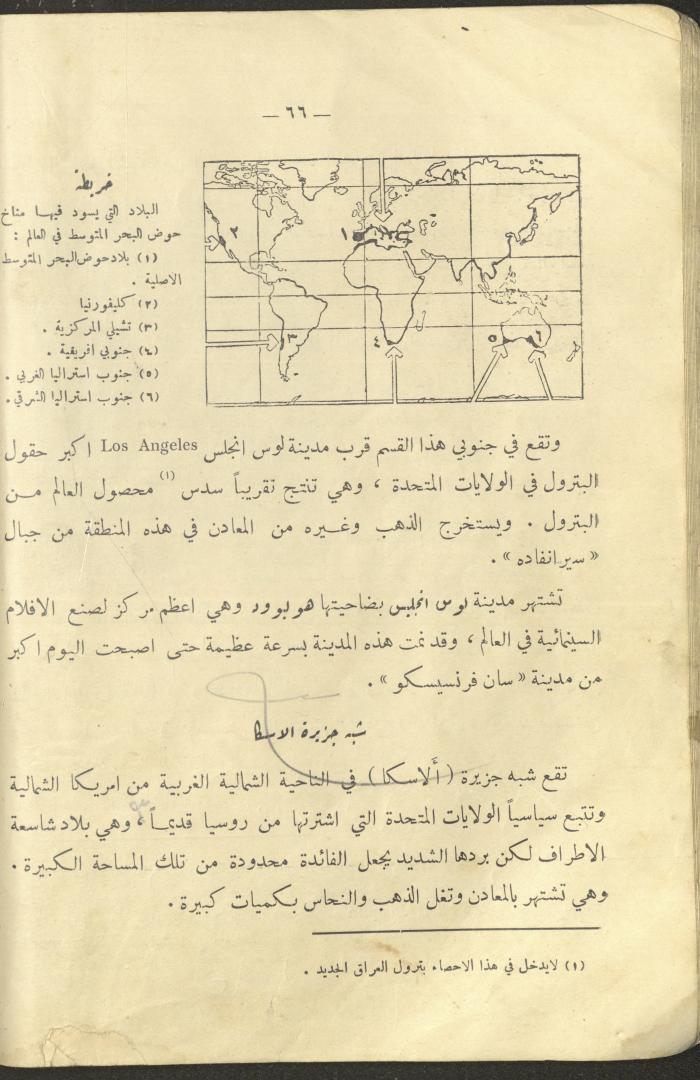 — ٦٦ —
خريطة
البلاد التي يسود فيها مناخ
حوض البحر المتوسط في العالم :
(١) بلاد حوض البحر المتوسط
الاصلية .
(٢) كليفورنيا
(٣) تشيلي المركزية .
(٤) جنوبي افريقية .
(٥) جنوب استراليا الغربي .
(٦) جنوب استراليا الشرقي .
١
٢
٣
٤
٥
٦
وتقع في جنوبي هذا القسم قرب مدينة لوس انجلس Los Angeles اكبر حقول
البترول في الولايات المتحدة ، وهي تنتج تقريباً سدس (١) محصول العالم من
البترول . ويستخرج الذهب وغيره من المعادن في هذه المنطقة من جبال
« سيرانفاده » .
تشتهر مدينة لوس انجلس بضاحيتها هوليوود وهي اعظم مركز لصنع الافلام
السينمائية في العالم ، وقد نمت هذه المدينة بسرعة عظيمة حتى اصبحت اليوم اكبر
من مدينة « سان فرنسيسكو » .
شبه جزيرة الاسكا
تقع شبه جزيرة ( أَلاسكا ) في الناحية الشمالية الغربية من امريكا الشمالية
وتتبع سياسياً الولايات المتحدة التي اشترتها من روسيا قديماً ، وهي بلاد شاسعة
الاطراف لكن بردها الشديد يجعل الفائدة محدودة من تلك المساحة الكبيرة .
وهي تشتهر بالمعادن وتغل الذهب والنحاس بكميات كبيرة .
(١) لا يدخل في هذا الاحصاء بترول العراق الجديد .